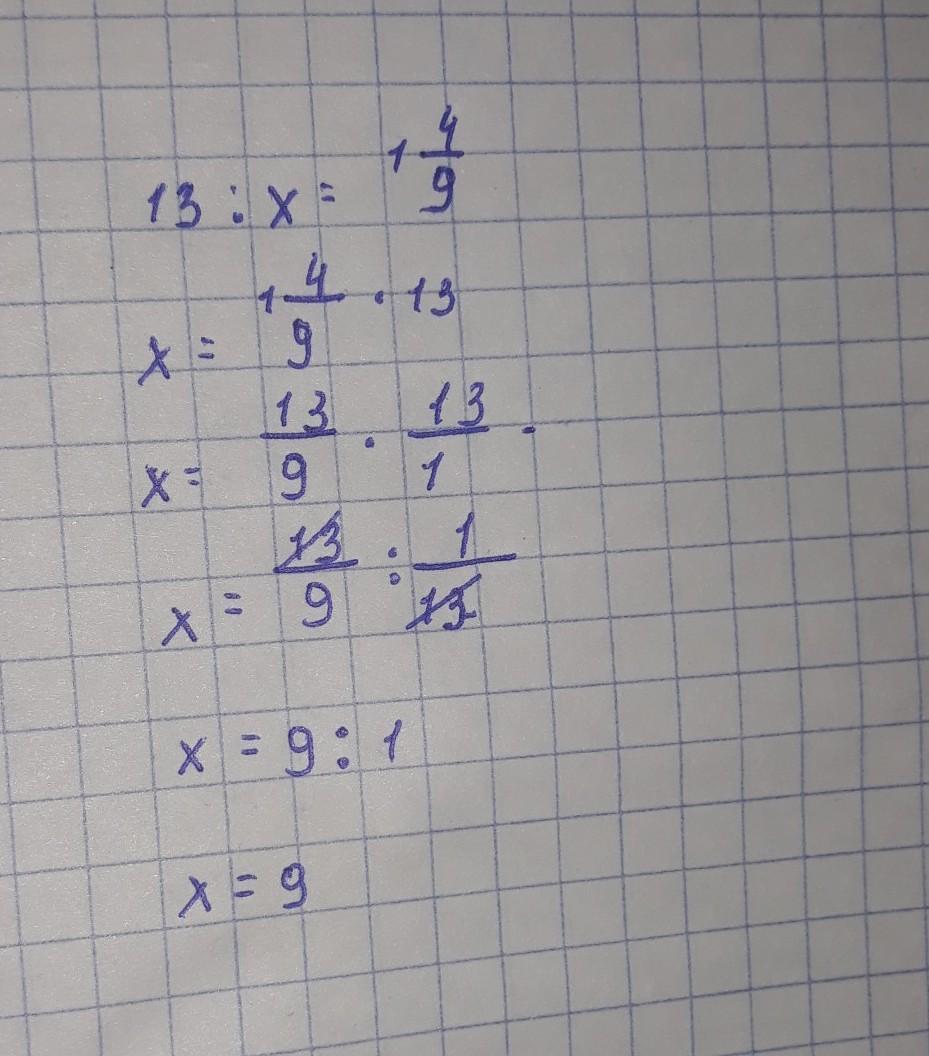 13 : x = 1 4/9
x = 1 4/9 · 13
x = 13/9 · 13/1 ·
x = 13/9 : 1/13
x = 9 : 1
x = 9